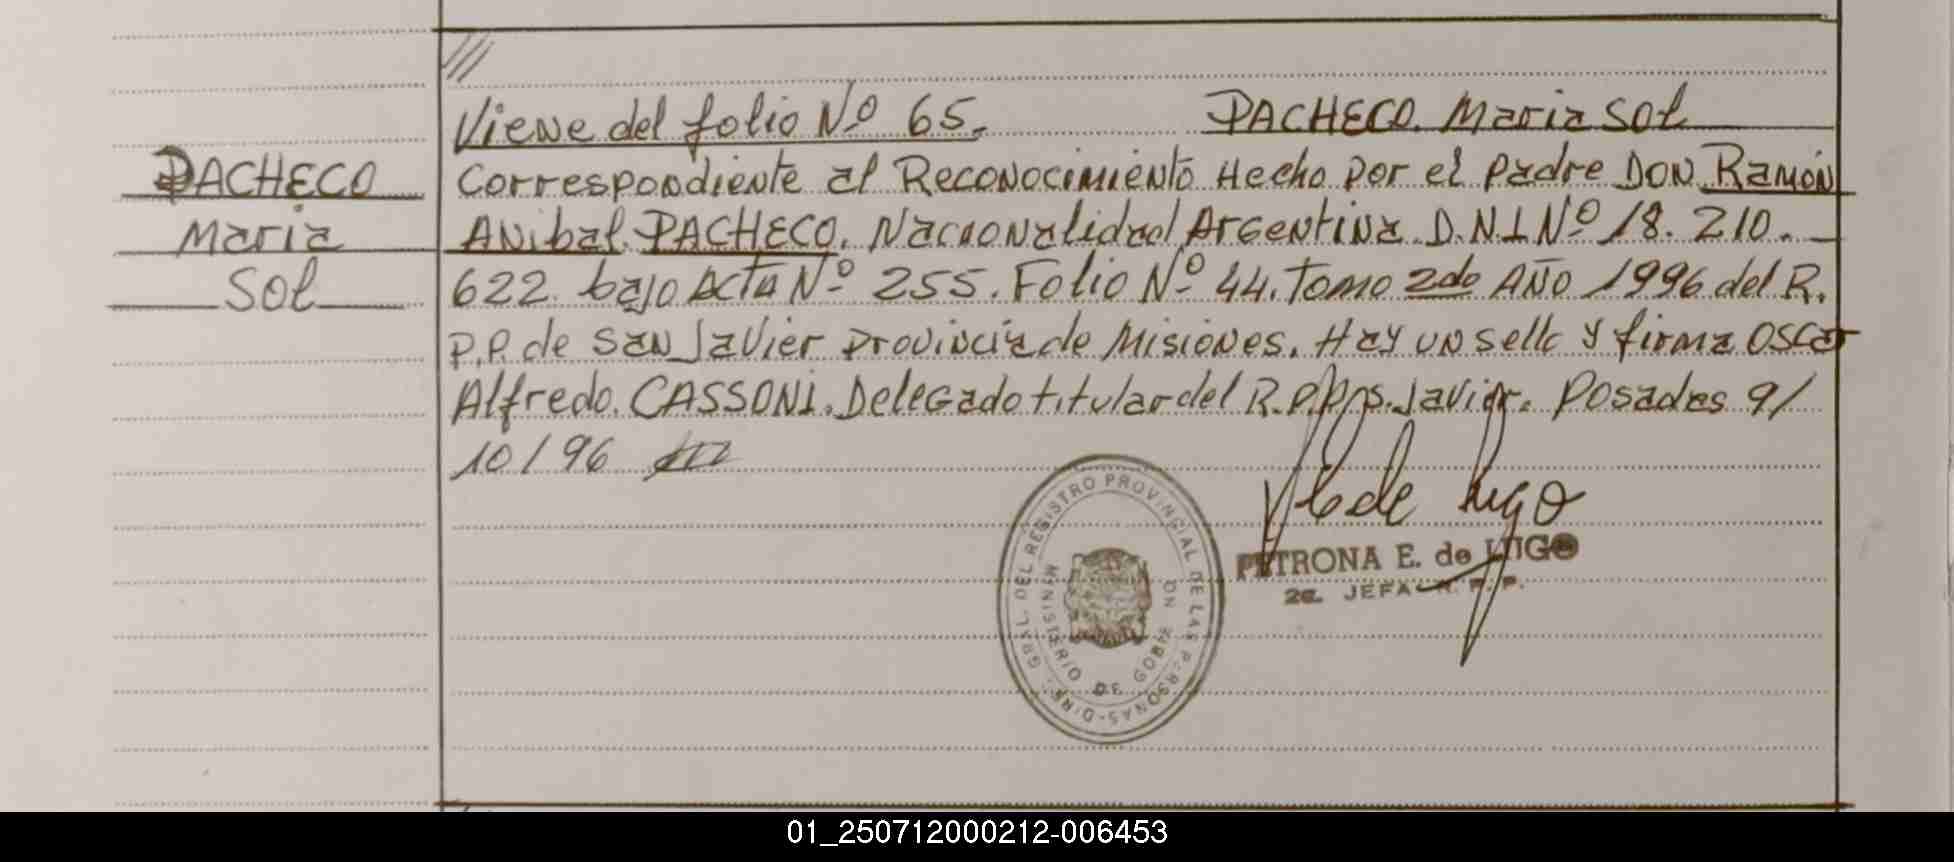 ///
Viene del folio Nº 65. PACHECO Maria Sol
PACHECO
Maria
Sol
Correspondiente al Reconocimiento Hecho por el padre DON Ramón
Anibal PACHECO. Nacionalidad Argentina D.N.I Nº 18.210.
622 bajo Acta Nº 255. Folio Nº 44. Tomo 2do AÑO 1996 del R.
P.P. de San Javier Provincia de Misiones. Hay un sello y firma Oscar
Alfredo. CASSONI. Delegado titular del R.P.P. S. Javier. Posadas 9/
10/96
de Lugo
PETRONA E. de LUGO
2a. JEFA R. P. P.
DIRE. GRAL. DEL REGISTRO PROVINCIAL DE LAS PERSONAS-
MINISTERIO DE GOBIE NO
01_250712000212-006453